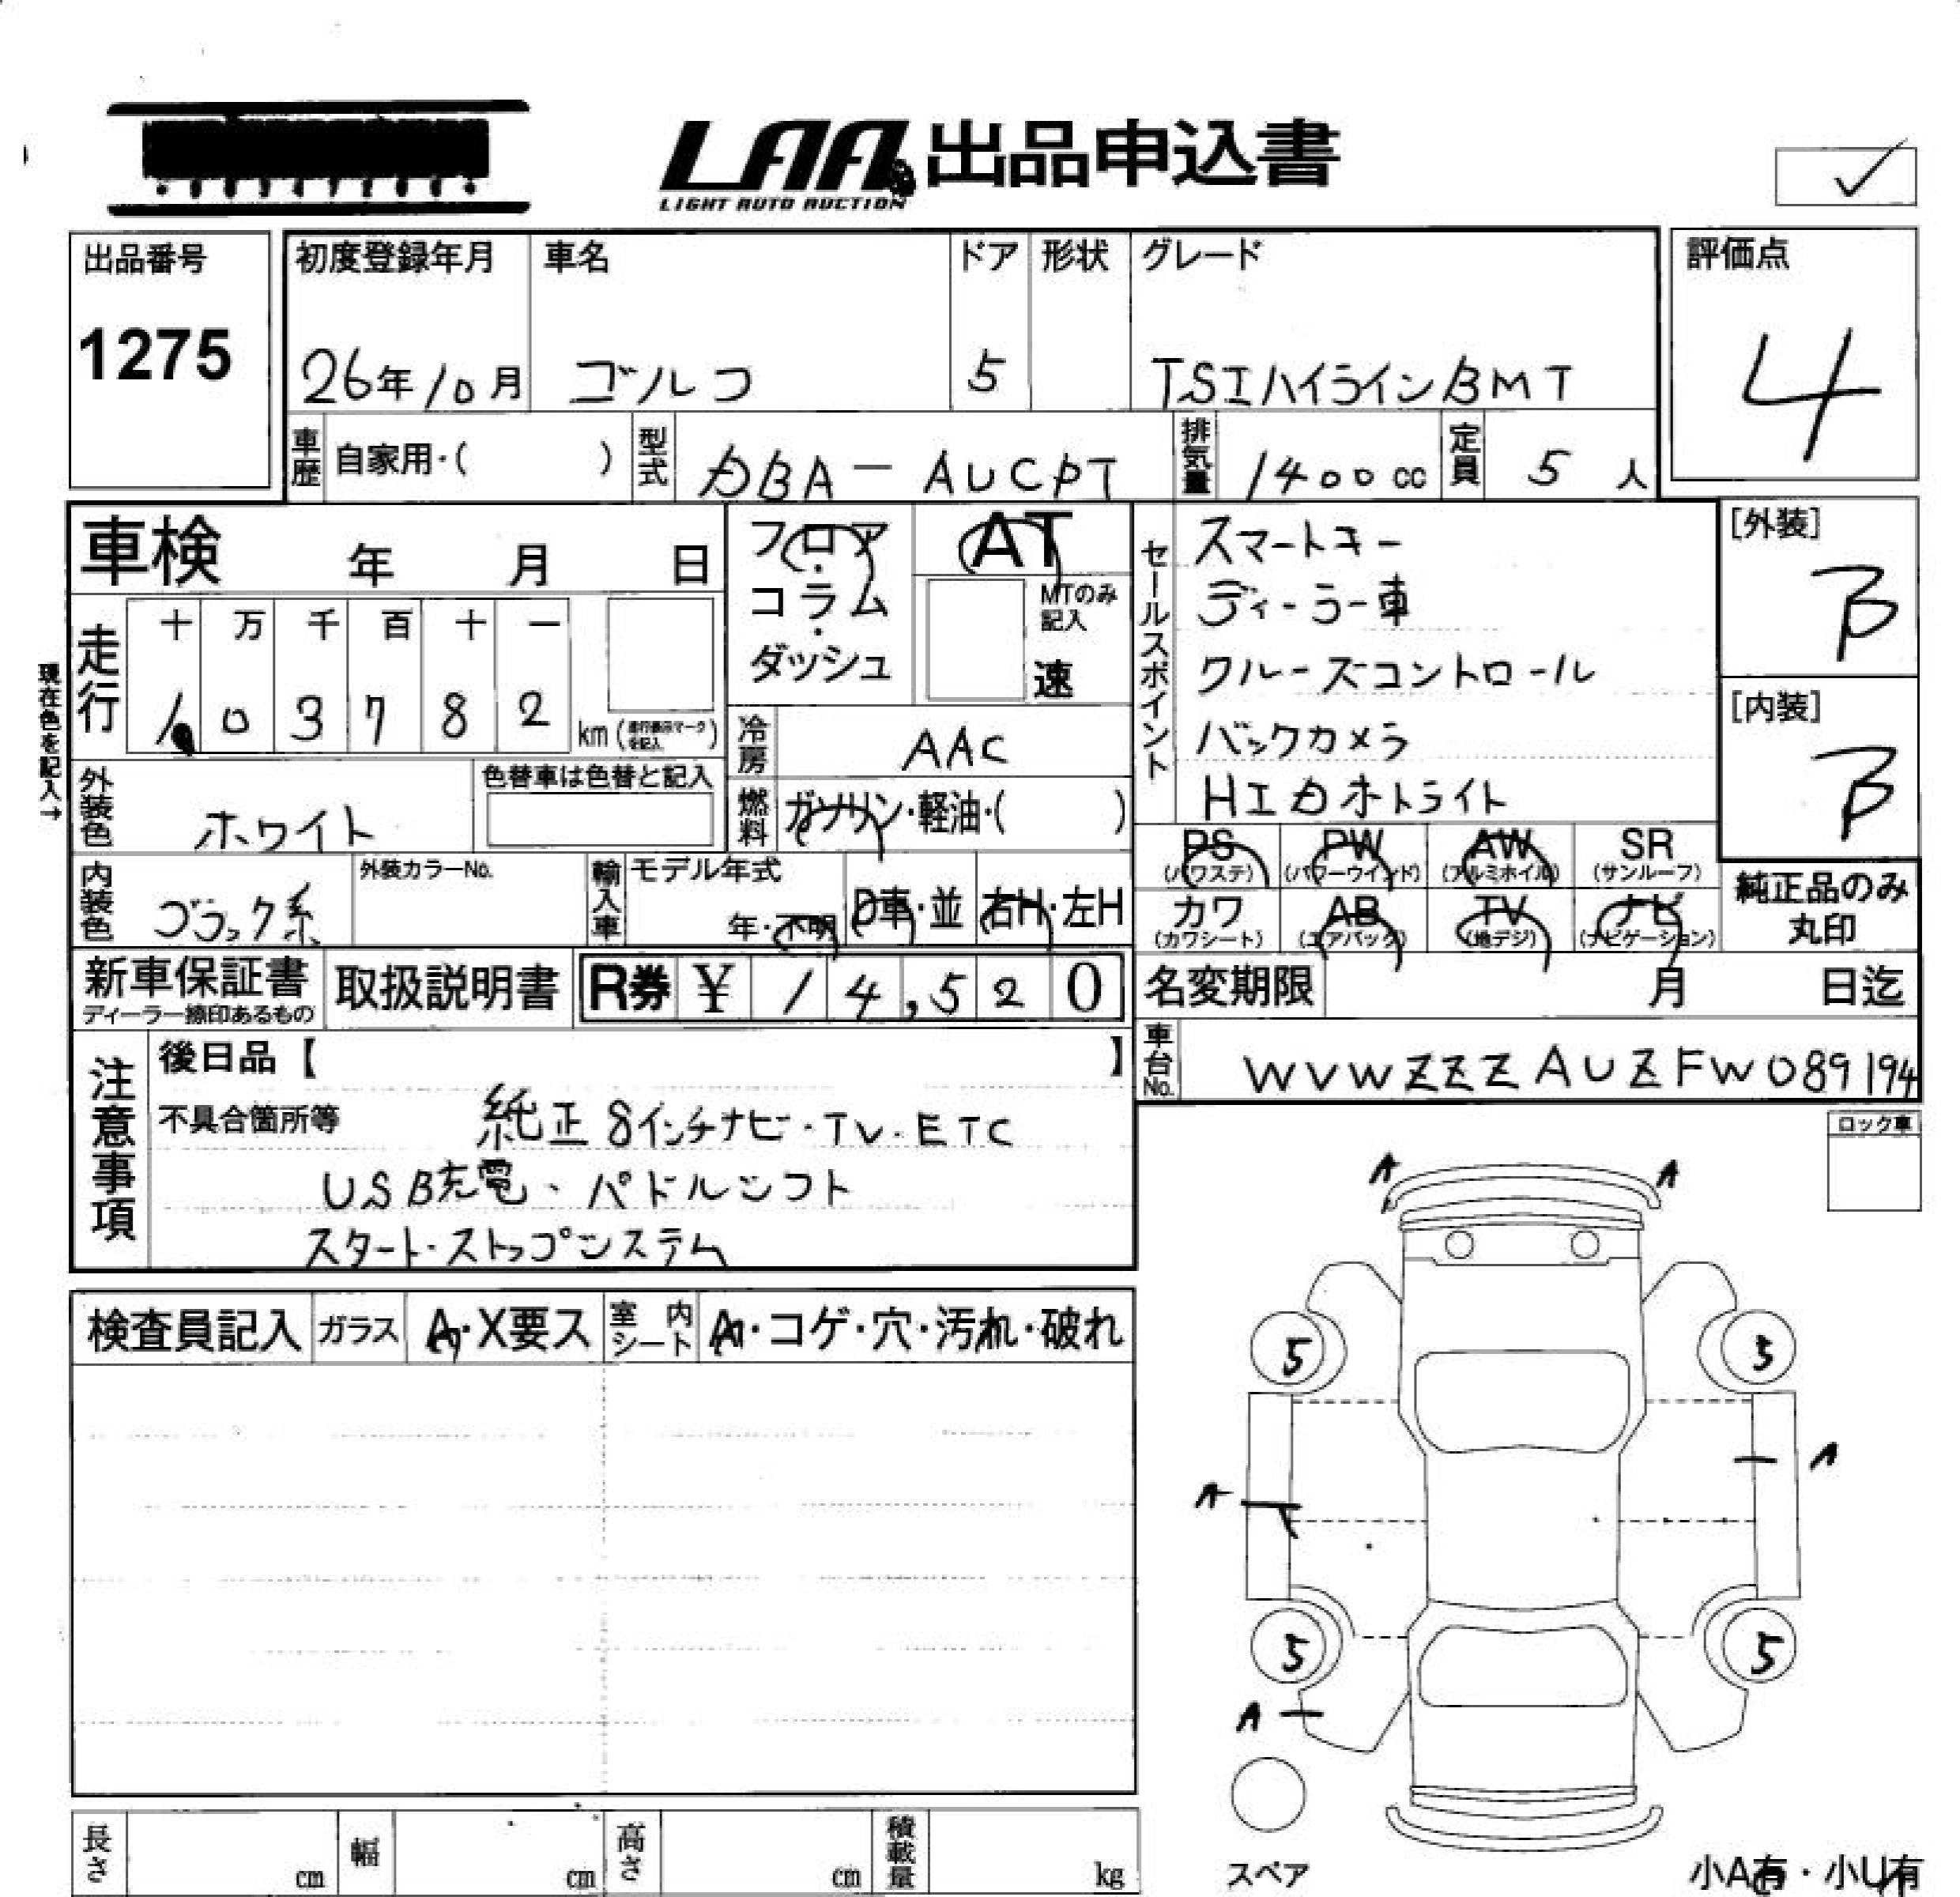 LAA 出品申込書
LIGHT AUTO AUCTION
出品番号
1275
初度登録年月
26年10月
車名
ゴルフ
ドア
5
形状
グレード
TSIハイラインBMT
評価点
4
車歴
自家用・( )
型式
DBA-AUCPT
排気量
1400cc
定員
5人
車検 年 月 日
フロア・コラム・ダッシュ
AT
MTのみ記入
速
セールスポイント
スマートキー
ディーラー車
クルーズコントロール
バックカメラ
HIDホトライト
[外装]
B
[内装]
B
現在色を記入→
走行
十 万 千 百 十 一
1 0 3 7 8 2
km(
を記入
)
冷房
AAC
外装色
ホワイト
色替車は色替と記入
燃料
ガソリン・軽油・( )
PS
(パワステ)
PW
(パワーウインド)
AW
(アルミホイル)
SR
(サンルーフ)
カワ
(カワシート)
AB
(エアバック)
TV
(地デジ)
ナビ
(ナビゲーション)
純正品のみ
丸印
内装色
ブラック系
外装カラーNo.
輸入車
モデル年式
年・不明
D車・並
右H・左H
新車保証書
ディーラー捺印あるもの
取扱説明書
R券 ¥ 14,520
名変期限 月 日迄
車台No.
WVWZZZAUZFW089194
注意事項
後日品【 】
不具合箇所等
純正8インチナビ・TV・ETC
USB充電・パドルシフト
スタート・ストップシステム
ロック車
A A
検査員記入
ガラス
A・X要ス
室内シート
A・コゲ・穴・汚れ・破れ
5 5
A
A
5 5
A
スペア
長さ cm
幅 cm
高さ cm
積載量 kg
小A有・小U有